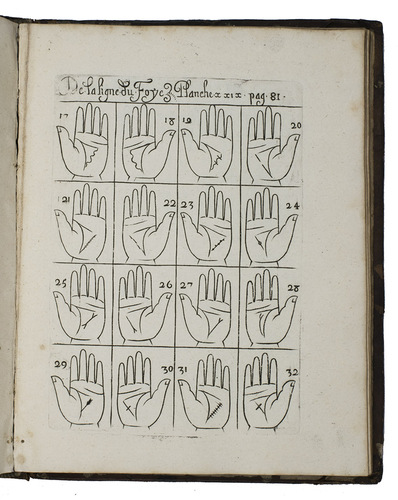 De la ligne du Foye Planche xxix · pag · 81 ·
17 18 19 20
21 22 23 24
25 26 27 28
29 30 31 32